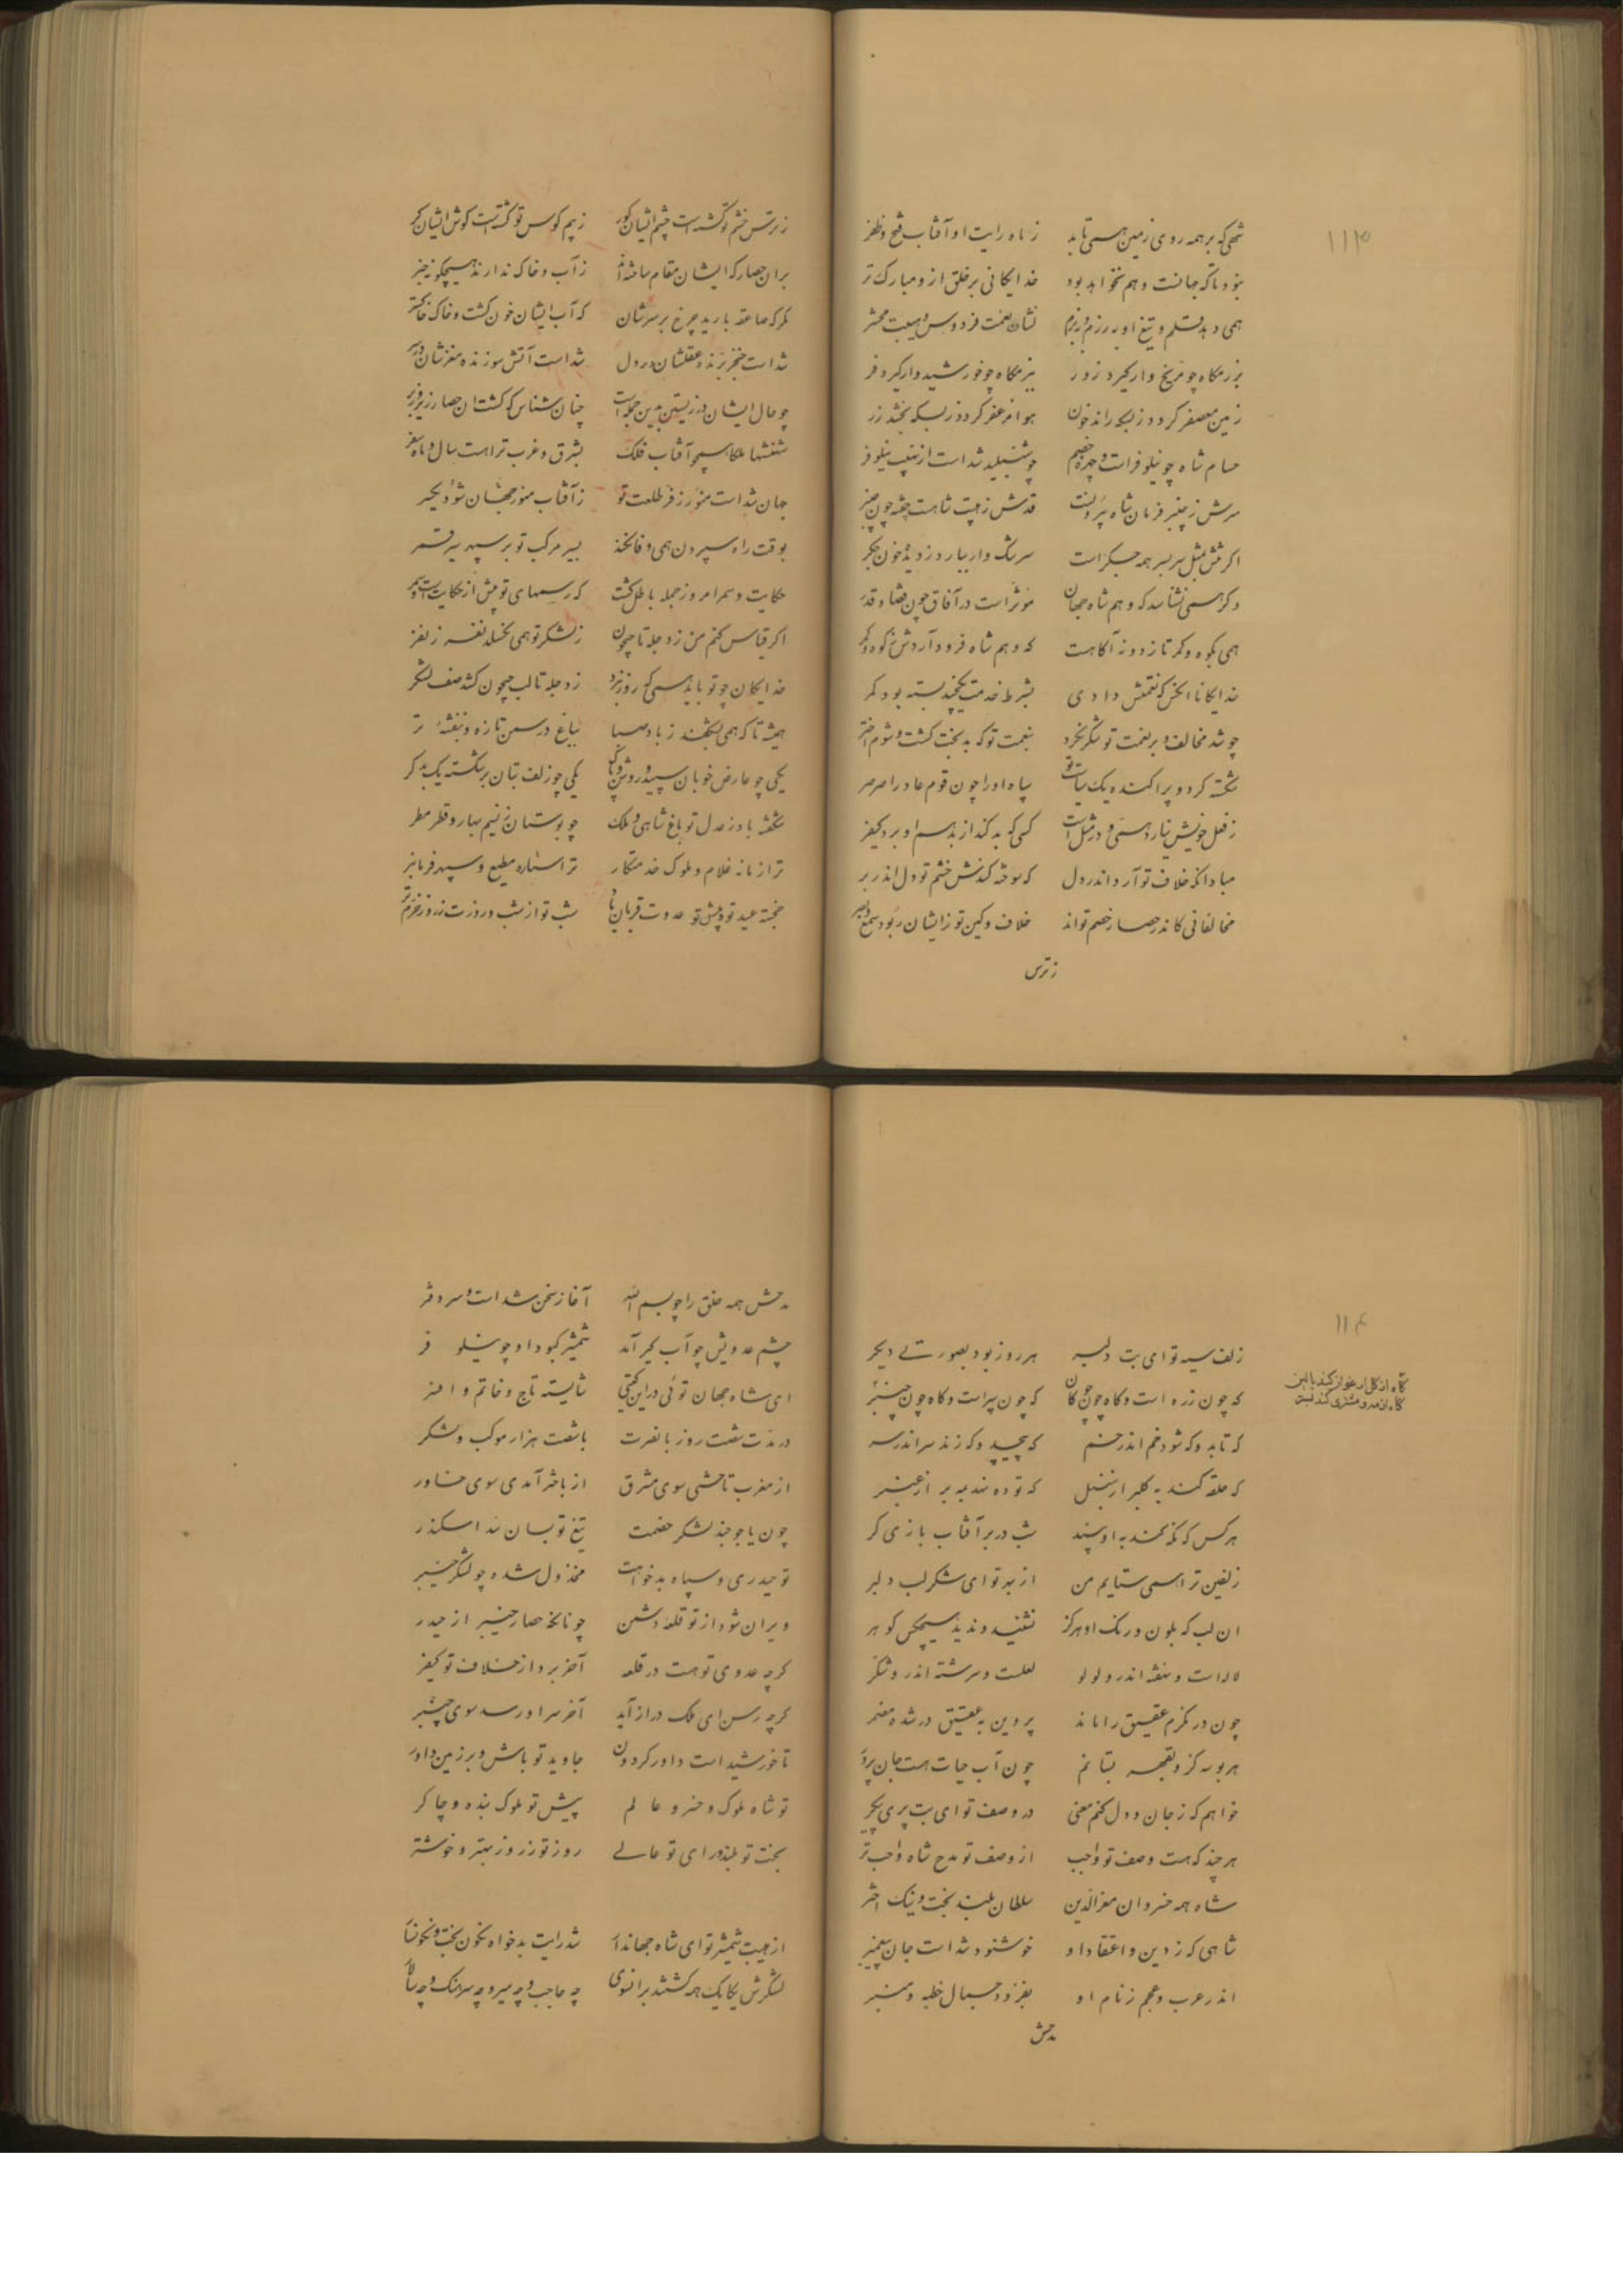 ۱۱۳
شهی که بر همه روی زمین همی تابد ز ماه رایت او آفتاب فتح و ظفر
نبود تا که جهانست و هم نخواهد بود خدایکانی بر خلق ازو مبارک تر
همی دهد قلم و تیغ او به رزم و ببزم نشان نعمت فردوس و هیبت محشر
برزمکاه چو مریخ وار کیرد زور ببزمکاه چو خورشید وار کیرد فر
زمین معصفر کردد ز بسکه راند خون هوا مزعفر کردد ز بسکه بخشد زر
حسام شاه چو نیلوفر است و چهره خصم چو شنبلید شد است از نهیب نیلوفر
سرش ز چنبر فرمان شاه بیرونست قدش ز هیبت شاهست خفته چون چنبر
اکر تنش بمثل سر بسر همه جکر است سرشک وار ببارد ز دیده خون جکر
وکر همی نشناسد که وهم شاه جهان مؤثر است در آفاق چون قضا و قدر
همی بکوه و کمر تازد و نه آکاهست که وهم شاه فرود آردش ز کوه و کمر
خدایکانا انکس که نعمتش دادی بشرط خدمت یکچند بسته بود کمر
چو شد مخالف و بر نعمت تو شکر نکرد بنعمت تو که بدبخت کشت و شوم اختر
شکسته کرد و پراکنده یک سیاست تو سپاه او را چون قوم عاد را صرصر
ز فعل خویش نیارد همی و در مثل است کسی که بد کند از بد هم او برد کیفر
مبادا انکه خلاف تو آرد اندر دل که سوخته کندش خشم تو دل اندر بر
مخالفانی کاندر حصار خصم تواند خلاف و کین تو زایشان ربود سمع و بصر
ز ترس
ز ترس خشم تو کشته است چشم ایشان کور ز بیم کوس تو کشتست کوش ایشان کر
بران حصار که ایشان مقام ساخته اند ز آب و خاک ندارند هیچکونه خبر
مکر که صاعقه بارید چرخ بر سرشان که آب ایشان خون کشت و خاک خاکستر
شد است خنجر برنده عقلشان در دل شد است آتش سوزنده مغزشان در سر
چو حال ایشان در زیستن بدین جمله است چنان شناس که کشت ان حصار زیر و زبر
شهنشها ملکا همچو آفتاب فلک بشرق و غرب تراست سال و ماه سفر
جهان شد است منور ز فر طلعت تو ز آفتاب منور جهان شود یکسر
بوقت راه سپردن همی وفا نکند بسیر مرکب تو بر سپهر سیر قمر
حکایت و سمر امروز جمله باطل کشت که رسمهای تو بیش از حکایت است و سمر
اکر قیاس کنم من ز دجله تا جیحون ز لشکر تو همی نکسلد نفر ز نفر
خدایکان چو تو باید همی که روز نبرد ز دجله تا لب جیحون کشد صف لشکر
همیشه تا که همی بشکفند ز باد صبا بباغ در سمن تازه و بنفشه تر
یکی چو عارض خوبان سپید و روشن و پاک یکی چو زلف بتان بر شکسته یک بدکر
شکفته باد ز عدل تو باغ شاهی و ملک چو بوستان ز نسیم بهار و قطر مطر
ترا زمانه غلام و ملوک خدمتکار ترا ستاره مطیع و سپهر فرمانبر
خجسته عید تو و پیش تو عدوت قربان باد شب تو از شب و روزت ز روز خرم تر
۱۱۴
زلف سیه تو ای بت دلبر هر روز بود بصورتی دیکر
که چون زره است و کاه چون چوکان که چون سپر است و کاه چون چنبر
کاه از کل ارغوان کند بالین کاه از مه و مشتری کند بستر
که تابد و که شود خم اندر خم که پیچد و که زند سر اندر سر
که حلقه کند به کلبر از سنبل که توده نهد به بر از عنبر
هرکس که نکه کند به او بیند شب در بر آفتاب بازی کر
زلفین ترا همی ستایم من از بهر تو ای شکر لب دلبر
ان لب که بلون و رنک او هرکز نشنید و ندید هیچکس کوهر
لاله است و نهفته اندرو لولو لعلست و سرشته اندرو شکر
چون درنکرم عقیق را ماند پروین به عقیق در شده مضمر
هر بوسه کزو بقهر بستانم چون آب حیات هست جان پرور
خواهم که ز جان و دل کنم معنی در وصف تو ای بت پری پیکر
هرچند که هست وصف تو واجب از وصف تو مدح شاه واجب تر
شاه همه خسروان معزالدین سلطان بلند بخت و نیک اختر
شاهی که ز دین و اعتقاد او خوشنود شد است جان پیغمبر
اندر عرب و عجم ز نام او بفزود جمال خطبه و منبر
مدحش
مدحش همه خلق را چو بسم الله آغاز سخن شد است و سر دفتر
چشم عدویش چو آب کیر آمد شمشیر کبود او چو نیلوفر
ای شاه جهان توئی در این کیتی شایسته تاج و خاتم و افسر
در مدت شصت روز با نصرت با شصت هزار موکب و لشکر
از مغرب تاختی سوی مشرق از باختر آمدی سوی خاور
چون یاجوجند لشکر خصمت تیغ تو بسان سد اسکندر
تو حیدری و سپاه بدخواهت مخذول شده چو لشکر خیبر
ویران شود از تو قلعه دشمن چونانکه حصار خیبر از حیدر
کرچه عدوی تو هست در قلعه آخر برد از خلاف تو کیفر
کرچه رسن ای ملک دراز آید آخر سر او رسد سوی چنبر
تا خورشید است داور کردون جاوید تو باش بر زمین داور
تو شاه ملوک و خسرو عالم پیش تو ملوک بنده و چاکر
بخت تو بلند و رای تو عالی روز تو ز روز بهتر و خوشتر
از هیبت شمشیر تو ای شاه جهاندار شد رایت بدخواه نکون بخت و نکونسار
لشکرش یکایک همه کشتند برانسوی چه حاجب و چه میر و چه سرهنک و چه سالار